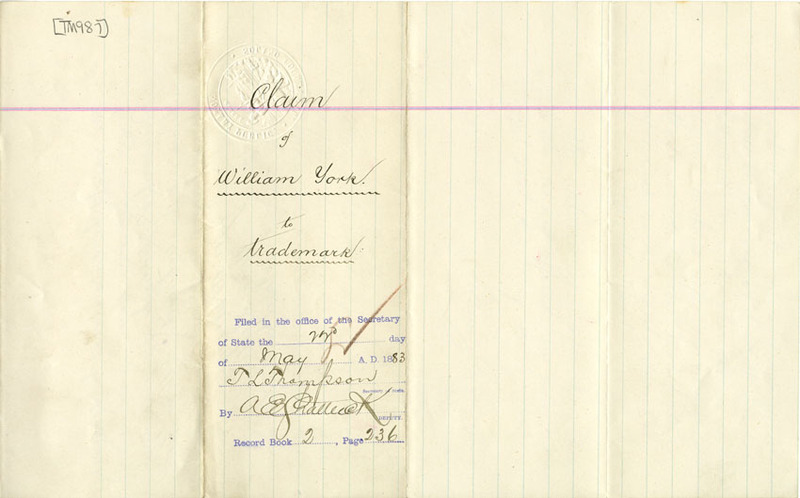 [TM987]
Claim
of
William York.
to
trademark.
Filed in the office of the Secretary
of State the 22nd day
of May A. D. 1883
T L Thompson
Secretary of State.
By A E Shattuck
DEPUTY
Record Book 2, Page 236